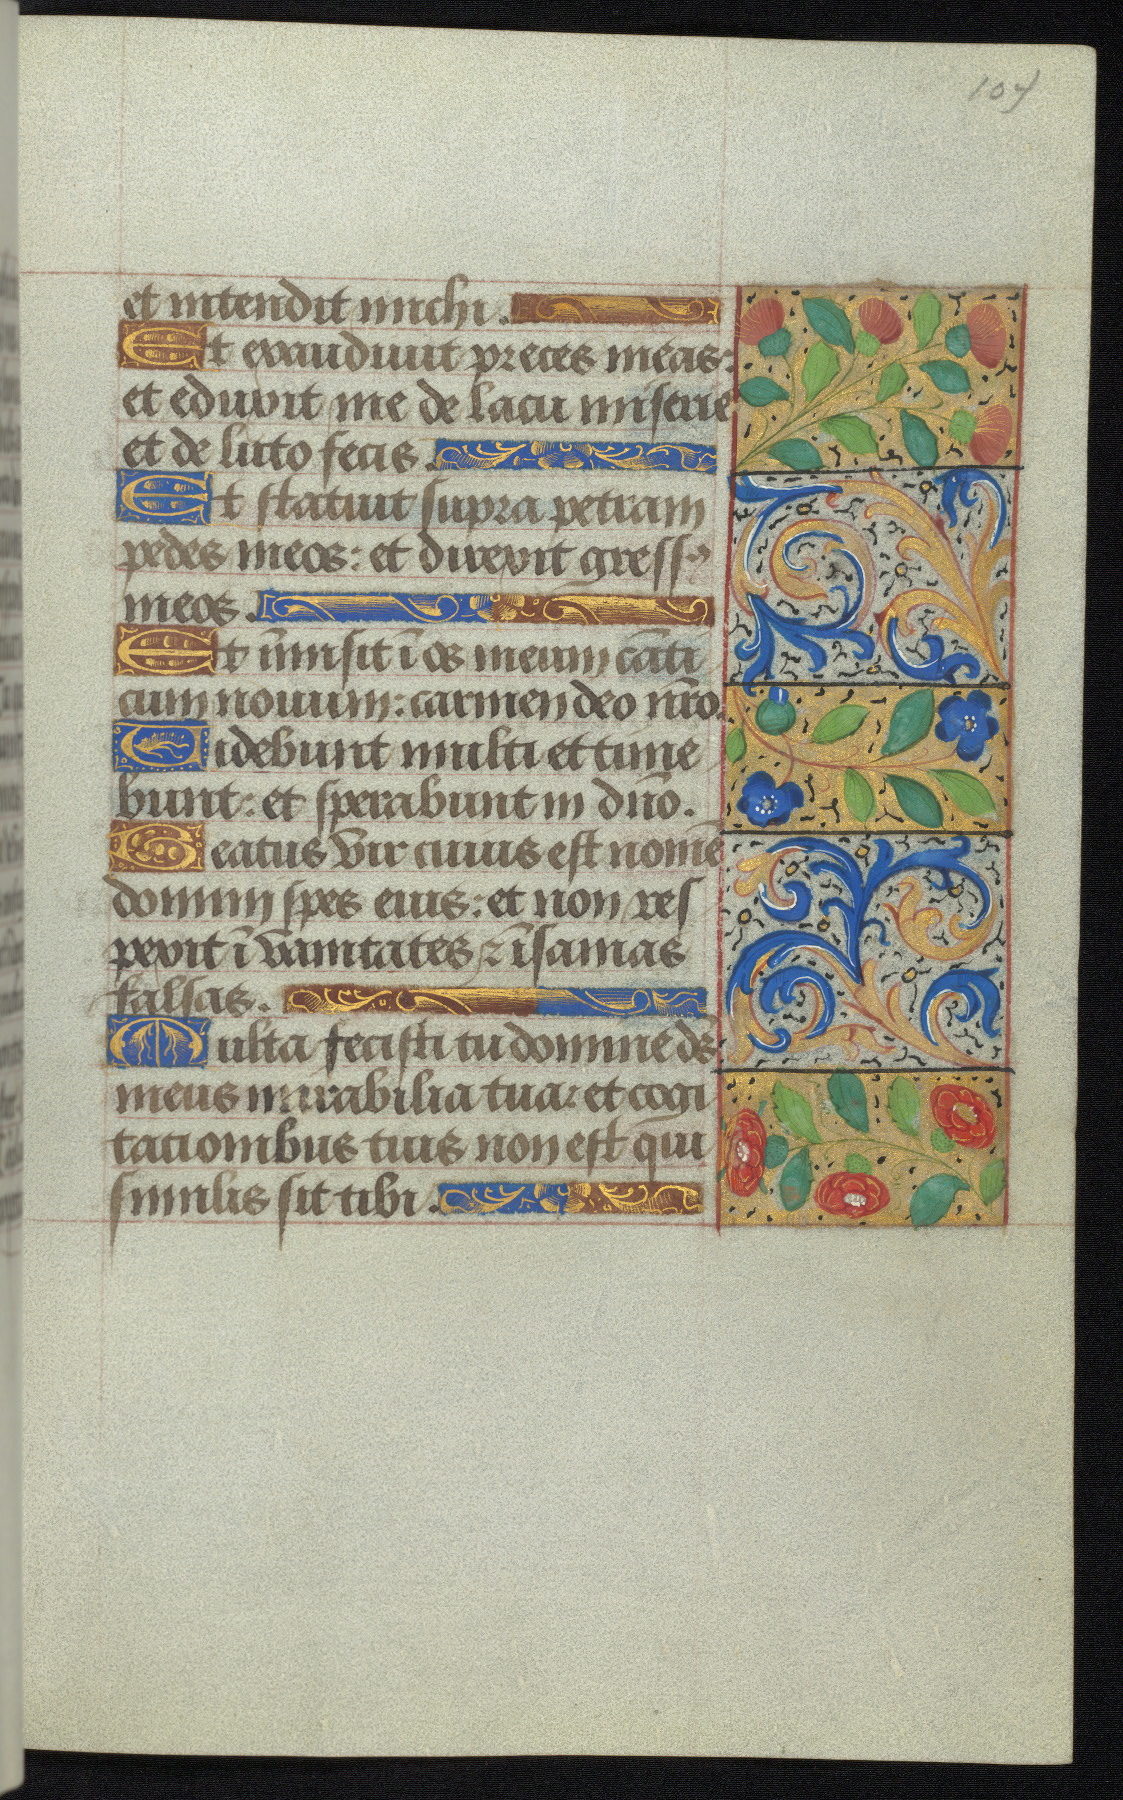 107
et intendit michi.
Et exaudiuit preces meas:
et eduxit me de lacu miserie
et de luto fecis.
Et statuit supra petram
pedes meos: et direxit gressꝰ
meos.
Et īmisit ī os meum cāti
cum nouum: carmen deo nr̄o.
Uidebunt multi et time
bunt: et sperabunt in dn̄o.
Beatus vir cuius est nomē
domini spes eius: et non res
pexit ī vanitates ⁊ īsanias
falsas.
Multa fecisti tu domine ds̄
meus mirabilia tua: et cogi
tationibus tuis non est qui
similis sit tibi.